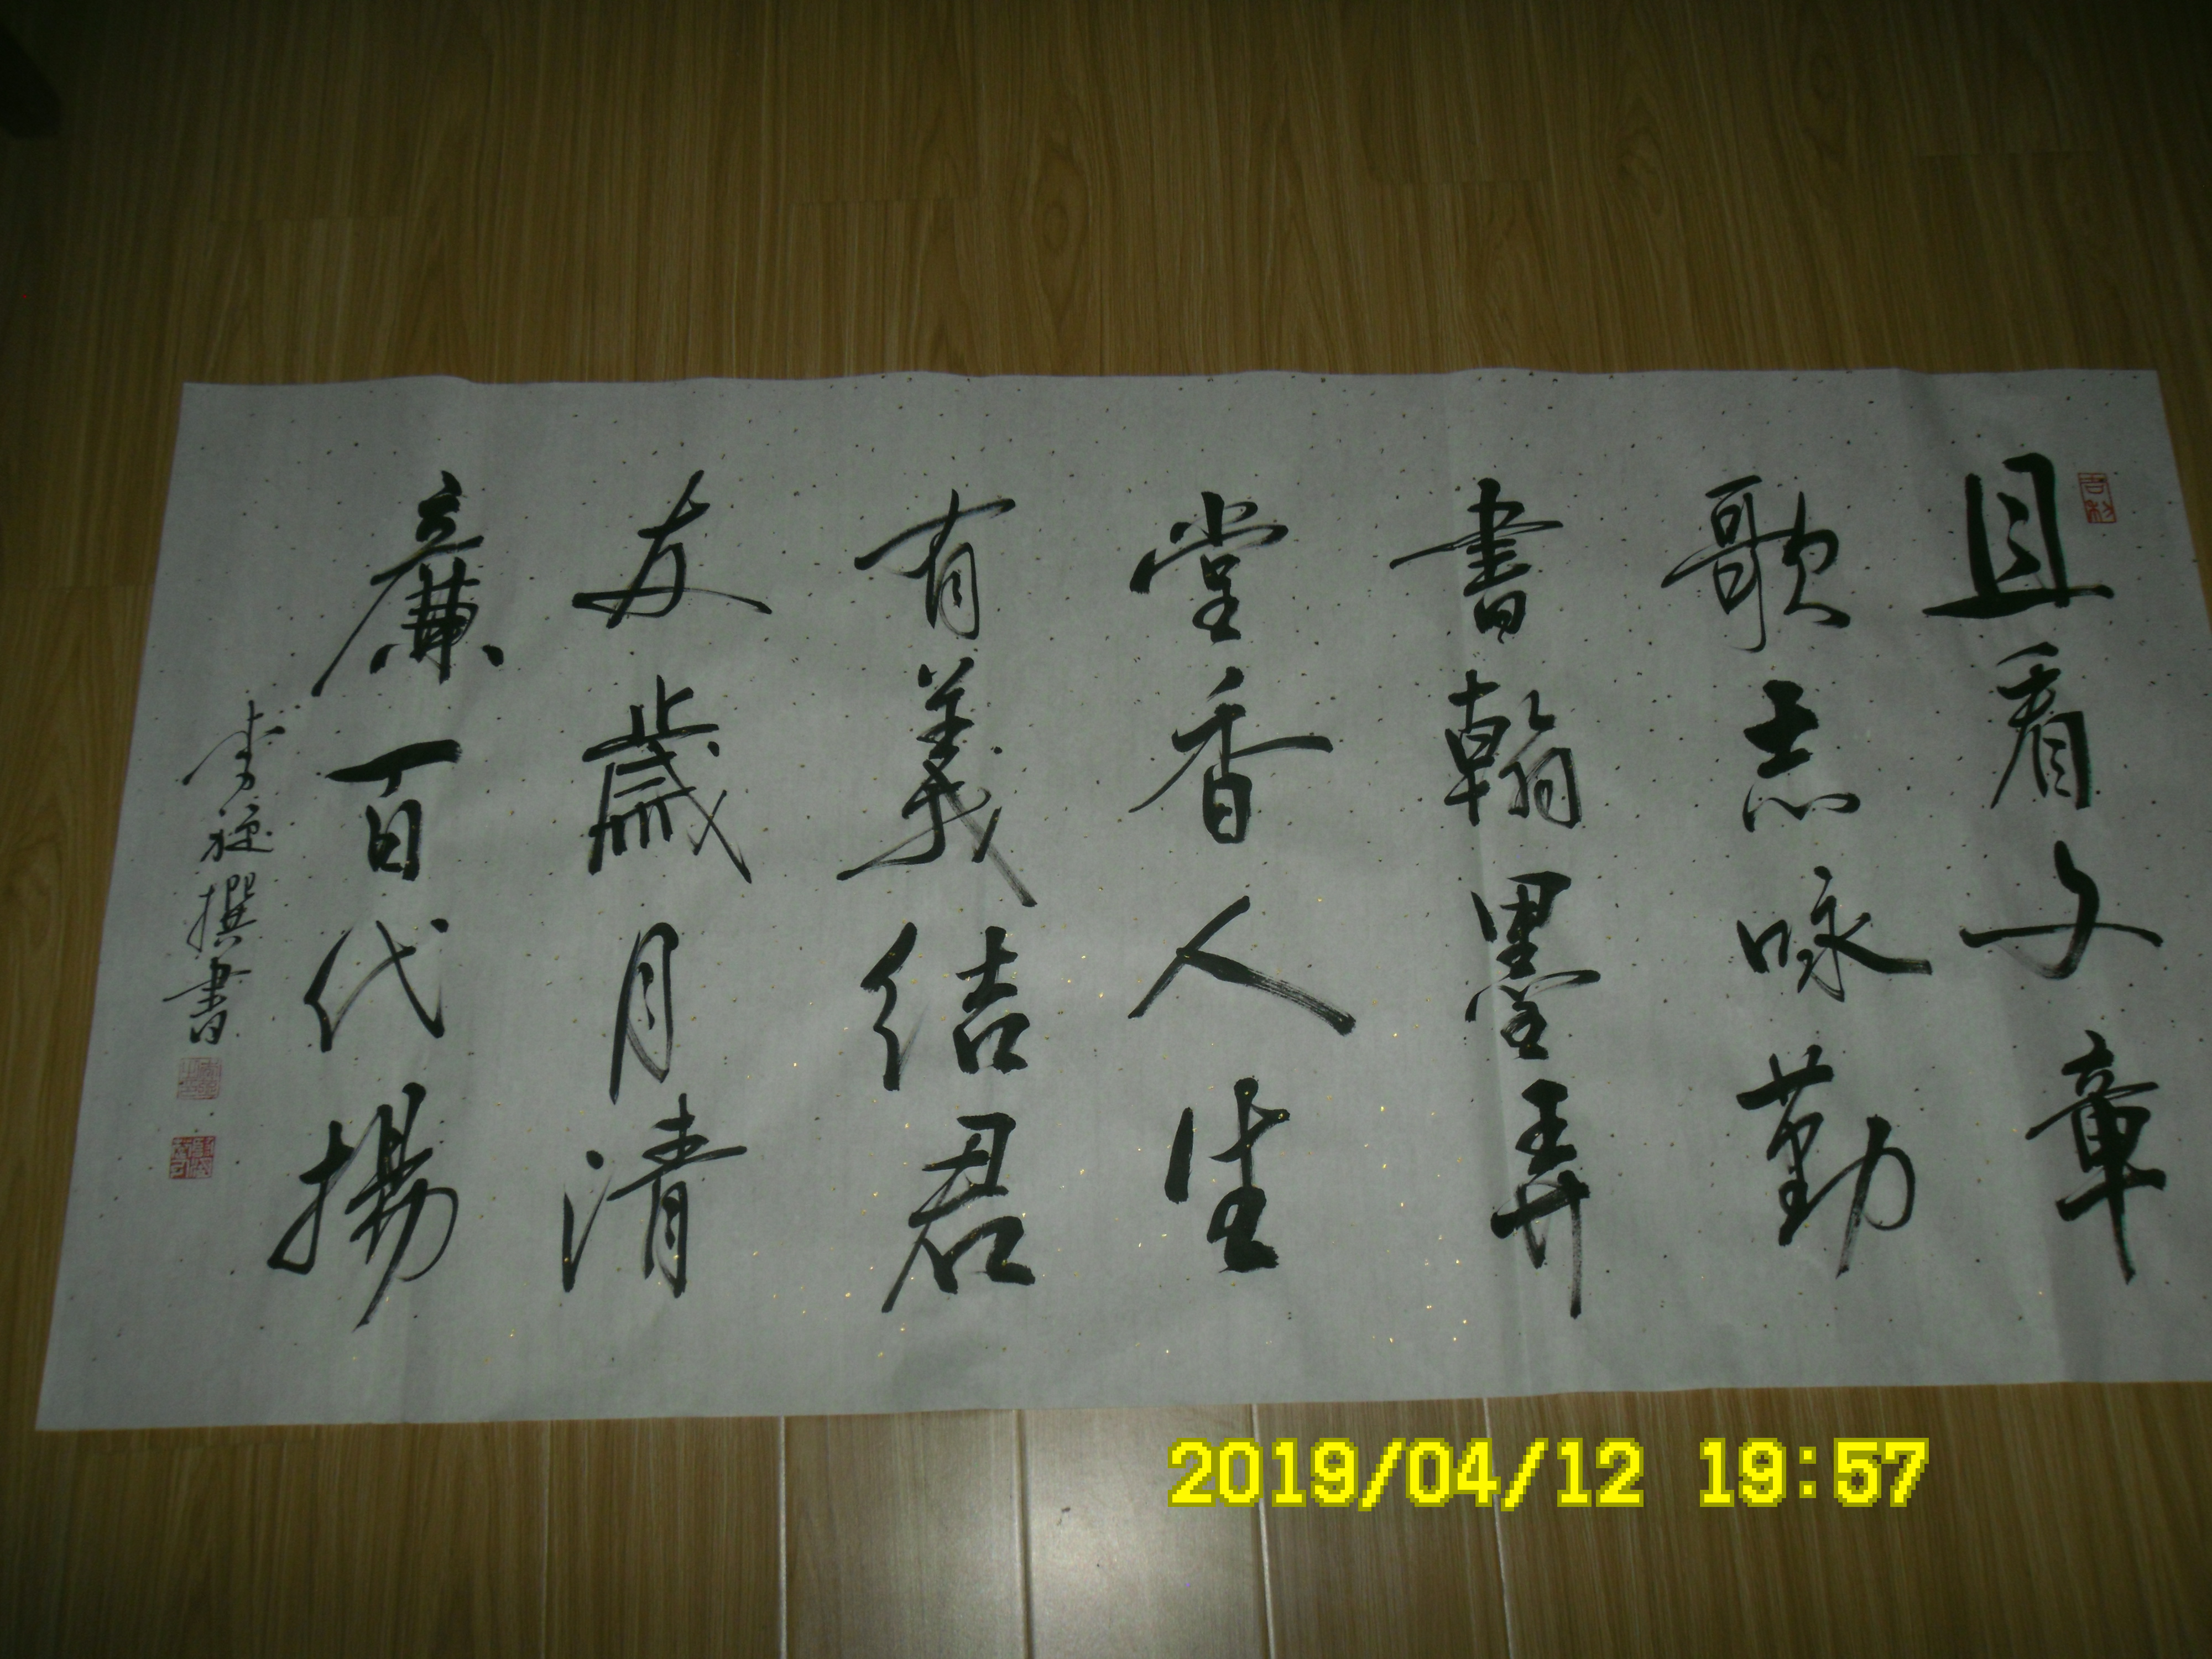 且看文章
歌志咏勤
書翰墨弄
堂香人生
有義結君
友歲月清
廉百代揚
李 撰書
2019/04/12 19:57